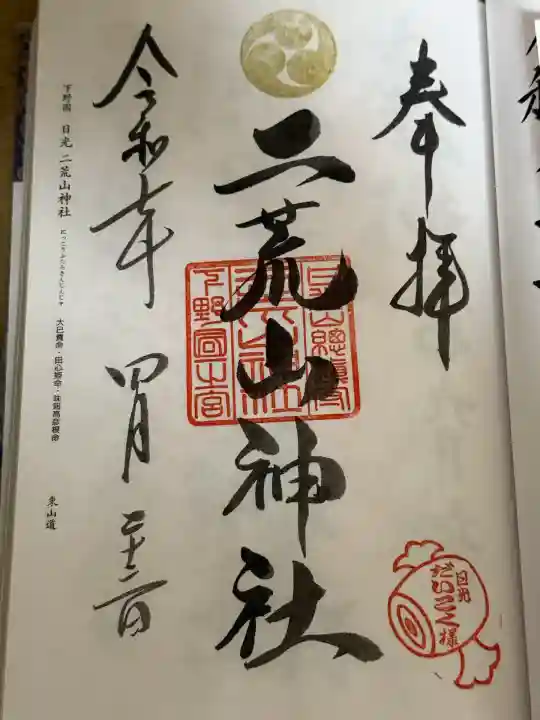 奉拝
日光
だいこく様
二荒山神社
下野国一宮
令和七年 四月 二十六日
下野国 日光 二荒山神社
にっこうふたらさんじんじゃ
大己貴命・田心姫命・味耜高彦根命
東山道